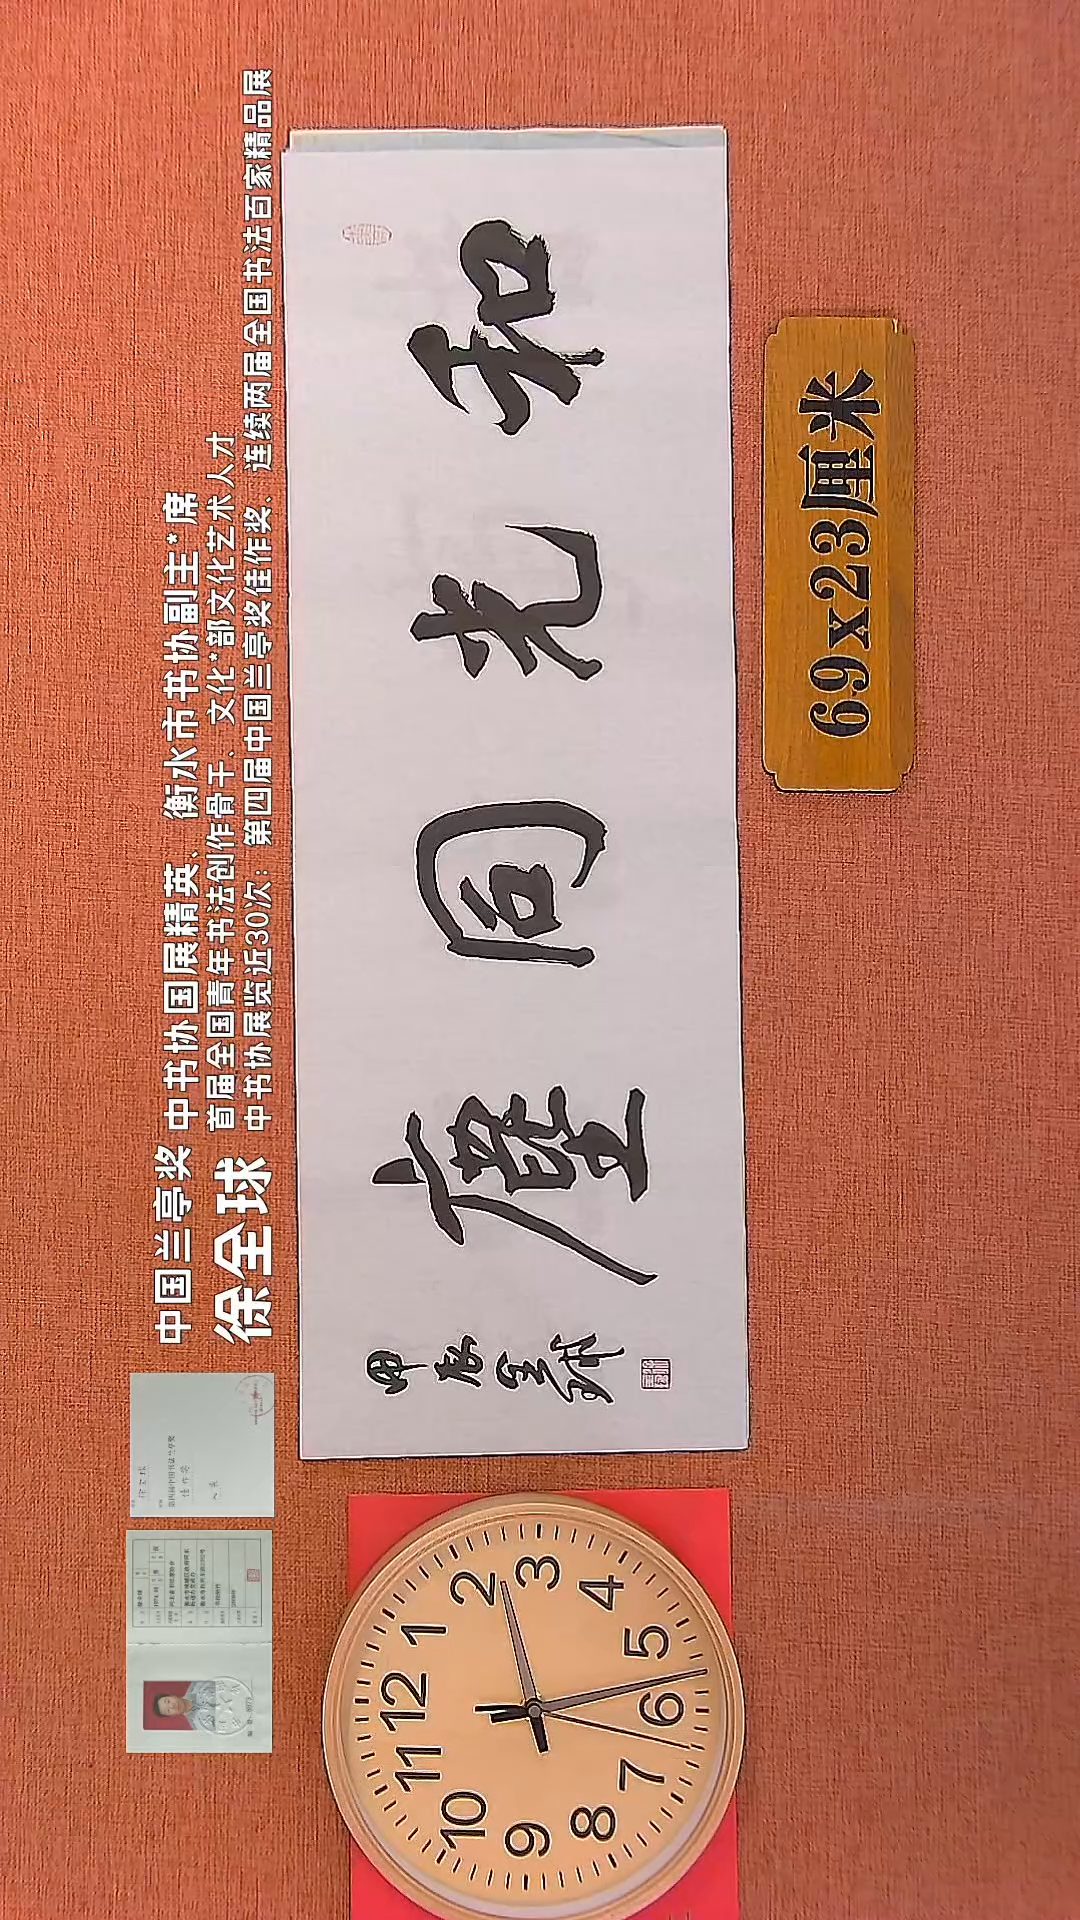 中国兰亭奖 中书协国展精英、衡水市书协副主*席
徐全球
首届全国青年书法创作骨干、文化*部文化艺术人才
中书协展览近30次：第四届中国兰亭奖佳作奖、连续两届全国书法百家精品展
和光同塵
全球
69x23厘米
12
1
2
3
4
5
6
7
8
9
10
11
第四届中国书法兰亭奖
佳作奖